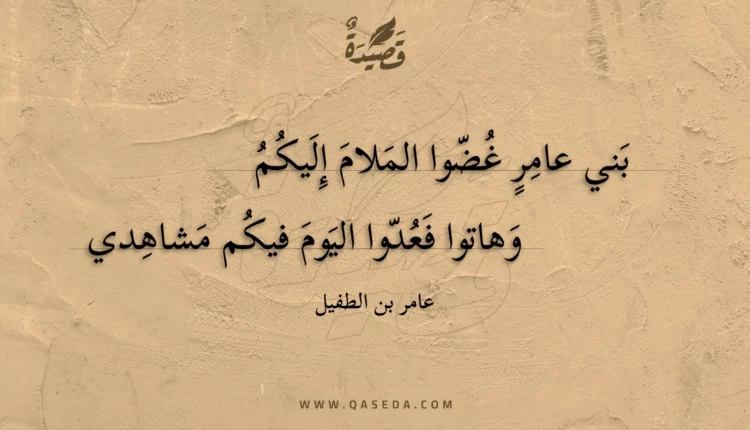 قَصِيدَةٌ
بَني عامِرٍ غُضّوا المَلامَ إِلَيكُمُ
وَهاتوا فَعُدّوا اليَومَ فيكُم مَشاهِدي
عامر بن الطفيل
WWW.QASEDA.COM